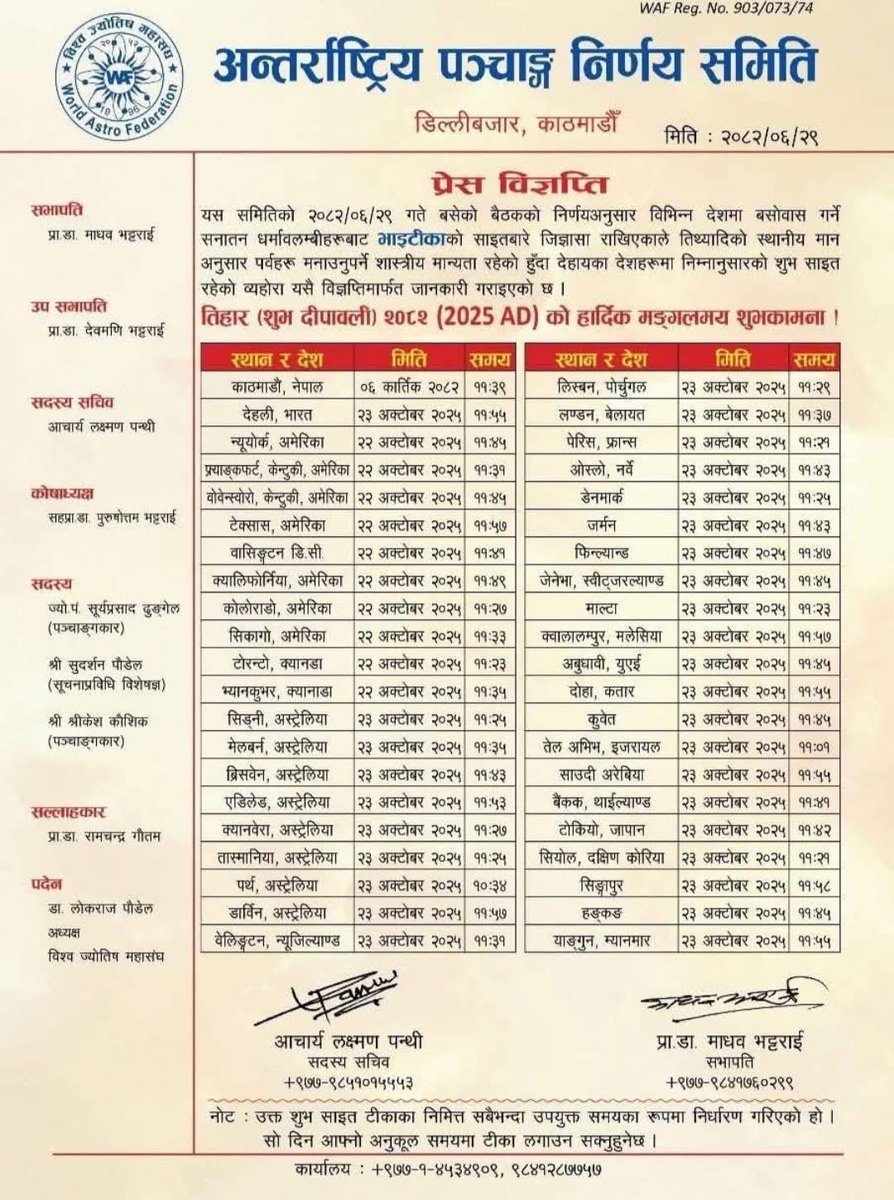 WAF Reg. No. 903/073/74
विश्व ज्योतिष महासंघ
WAF
1996
World Astro Federation
अन्तर्राष्ट्रिय पञ्चाङ्ग निर्णय समिति
डिल्लीबजार, काठमाडौँ
मिति : २०८२/०६/२९
सभापति
प्रा.डा. माधव भट्टराई
उप सभापति
प्रा.डा. देवमणि भट्टराई
सदस्य सचिव
आचार्य लक्ष्मण पन्थी
कोषाध्यक्ष
सहप्रा.डा. पुरुषोत्तम भट्टराई
सदस्य
ज्यो.पं. सूर्यप्रसाद ढुङ्गेल
(पञ्चाङ्गकार)
श्री सुदर्शन पौडेल
(सूचनाप्रविधि विशेषज्ञ)
श्री श्रीकेश कौशिक
(पञ्चाङ्गकार)
सल्लाहकार
प्रा.डा. रामचन्द्र गौतम
पदेन
डा. लोकराज पौडेल
अध्यक्ष
विश्व ज्योतिष महासंघ
प्रेस विज्ञप्ति
यस समितिको २०८२/०६/२९ गते बसेको बैठकको निर्णयअनुसार विभिन्न देशमा बसोवास गर्ने
सनातन धर्मावलम्बीहरूबाट भाइटीकाको साइतबारे जिज्ञासा राखिएकाले तिथ्यादिको स्थानीय मान
अनुसार पर्वहरू मनाउनुपर्ने शास्त्रीय मान्यता रहेको हुँदा देहायका देशहरूमा निम्नानुसारको शुभ साइत
रहेको व्यहोरा यसै विज्ञप्तिमार्फत जानकारी गराइएको छ ।
तिहार (शुभ दीपावली) २०८२ (2025 AD) को हार्दिक मङ्गलमय शुभकामना !
स्थान र देश मिति समय
काठमाडौं, नेपाल ०६ कार्तिक २०८२ ११:३९
देहली, भारत २३ अक्टोबर २०२५ ११:५५
न्यूयोर्क, अमेरिका २२ अक्टोबर २०२५ ११:४५
फ्र्याङ्कफर्ट, केन्टुकी, अमेरिका २२ अक्टोबर २०२५ ११:३१
वोवेन्स्वोरो, केन्टुकी, अमेरिका २२ अक्टोबर २०२५ ११:४५
टेक्सास, अमेरिका २२ अक्टोबर २०२५ ११:५७
वासिङ्गटन डि.सी. २२ अक्टोबर २०२५ ११:४१
क्यालिफोर्निया, अमेरिका २२ अक्टोबर २०२५ ११:४९
कोलोराडो, अमेरिका २२ अक्टोबर २०२५ ११:२७
सिकागो, अमेरिका २२ अक्टोबर २०२५ ११:३३
टोरन्टो, क्यानडा २२ अक्टोबर २०२५ ११:२३
भ्यानकुभर, क्यानाडा २२ अक्टोबर २०२५ ११:३५
सिड्नी, अस्ट्रेलिया २३ अक्टोबर २०२५ ११:२५
मेलबर्न, अस्ट्रेलिया २३ अक्टोबर २०२५ ११:३५
ब्रिसवेन, अस्ट्रेलिया २३ अक्टोबर २०२५ ११:४३
एडिलेड, अस्ट्रेलिया २३ अक्टोबर २०२५ ११:५३
क्यानवेरा, अस्ट्रेलिया २३ अक्टोबर २०२५ ११:२७
तास्मानिया, अस्ट्रेलिया २३ अक्टोबर २०२५ ११:२५
पर्थ, अस्ट्रेलिया २३ अक्टोबर २०२५ १०:३४
डार्विन, अस्ट्रेलिया २३ अक्टोबर २०२५ ११:५७
वेलिङ्गटन, न्यूजिल्याण्ड २३ अक्टोबर २०२५ ११:३१
स्थान र देश मिति समय
लिस्बन, पोर्चुगल २३ अक्टोबर २०२५ ११:२९
लण्डन, बेलायत २३ अक्टोबर २०२५ ११:३७
पेरिस, फ्रान्स २३ अक्टोबर २०२५ ११:२१
ओस्लो, नर्वे २३ अक्टोबर २०२५ ११:४३
डेनमार्क २३ अक्टोबर २०२५ ११:२५
जर्मन २३ अक्टोबर २०२५ ११:४३
फिन्ल्यान्ड २३ अक्टोबर २०२५ ११:४७
जेनेभा, स्वीट्जरल्याण्ड २३ अक्टोबर २०२५ ११:४५
माल्टा २३ अक्टोबर २०२५ ११:२३
क्वालालम्पुर, मलेसिया २३ अक्टोबर २०२५ ११:५७
अबुधावी, युएई २३ अक्टोबर २०२५ ११:४५
दोहा, कतार २३ अक्टोबर २०२५ ११:५५
कुवेत २३ अक्टोबर २०२५ ११:४५
तेल अभिभ, इजरायल २३ अक्टोबर २०२५ ११:०१
साउदी अरेबिया २३ अक्टोबर २०२५ ११:५५
बैंकक, थाईल्याण्ड २३ अक्टोबर २०२५ ११:४१
टोकियो, जापान २३ अक्टोबर २०२५ ११:४२
सियोल, दक्षिण कोरिया २३ अक्टोबर २०२५ ११:२१
सिङ्गापुर २३ अक्टोबर २०२५ ११:५८
हङ्कङ २३ अक्टोबर २०२५ ११:४५
याङ्गुन, म्यानमार २३ अक्टोबर २०२५ ११:५५
आचार्य लक्ष्मण पन्थी
सदस्य सचिव
+९७७-९८५१०१५५५३
प्रा.डा. माधव भट्टराई
सभापति
+९७७-९८४१७६०२९९
नोट : उक्त शुभ साइत टीकाका निमित्त सबैभन्दा उपयुक्त समयका रूपमा निर्धारण गरिएको हो ।
सो दिन आफ्नो अनुकूल समयमा टीका लगाउन सक्नुहुनेछ ।
कार्यालय : +९७७-१-४५३४९०९, ९८४१२८७७५७